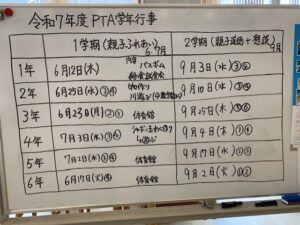 令和7年度 PTA学年行事
1学期(親子ふれあい) 6,7月
2学期(親子道徳+懇談) 9月
1年 6月12日(木) 内容 バスボム 給食試食会 9月3日(水)③④
2年 6月25日(水)③④ 9月10日(水)③④
3年 6月23日(月)②① 体育館 9月25日(木)⑤⑥
4年 7月3日(木)③④ 9月4日(木)③④
5年 7月2日(水)⑤⑥ 体育館 9月17日(水)①
6年 6月17日(火)⑤ 体育館 9月2日(火)